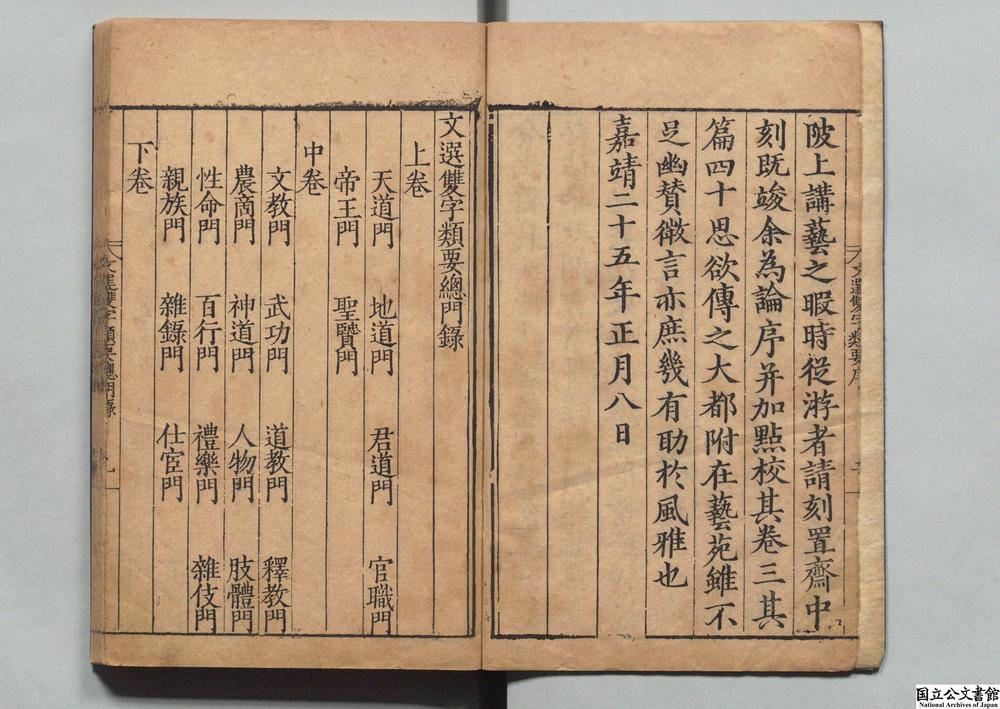 陂上講藝之暇時從游者請刻置齋中
刻既竣余為論序并加點校其卷三其
篇四十思欲傳之大都附在藝苑雖不
足幽賛微言亦庶幾有助於風雅也
嘉靖二十五年正月八日
文選雙字類要序
文選雙字類要總門錄
上卷
天道門 地道門 君道門 官職門
帝王門 聖賢門
中卷
文教門 武功門 道教門 釋教門
農商門 神道門 人物門 肢體門
性命門 百行門 禮樂門 雜伎門
親族門 雜錄門 仕宦門
下卷
文選雙字類要總門錄
国立公文書館
National Archives of Japan